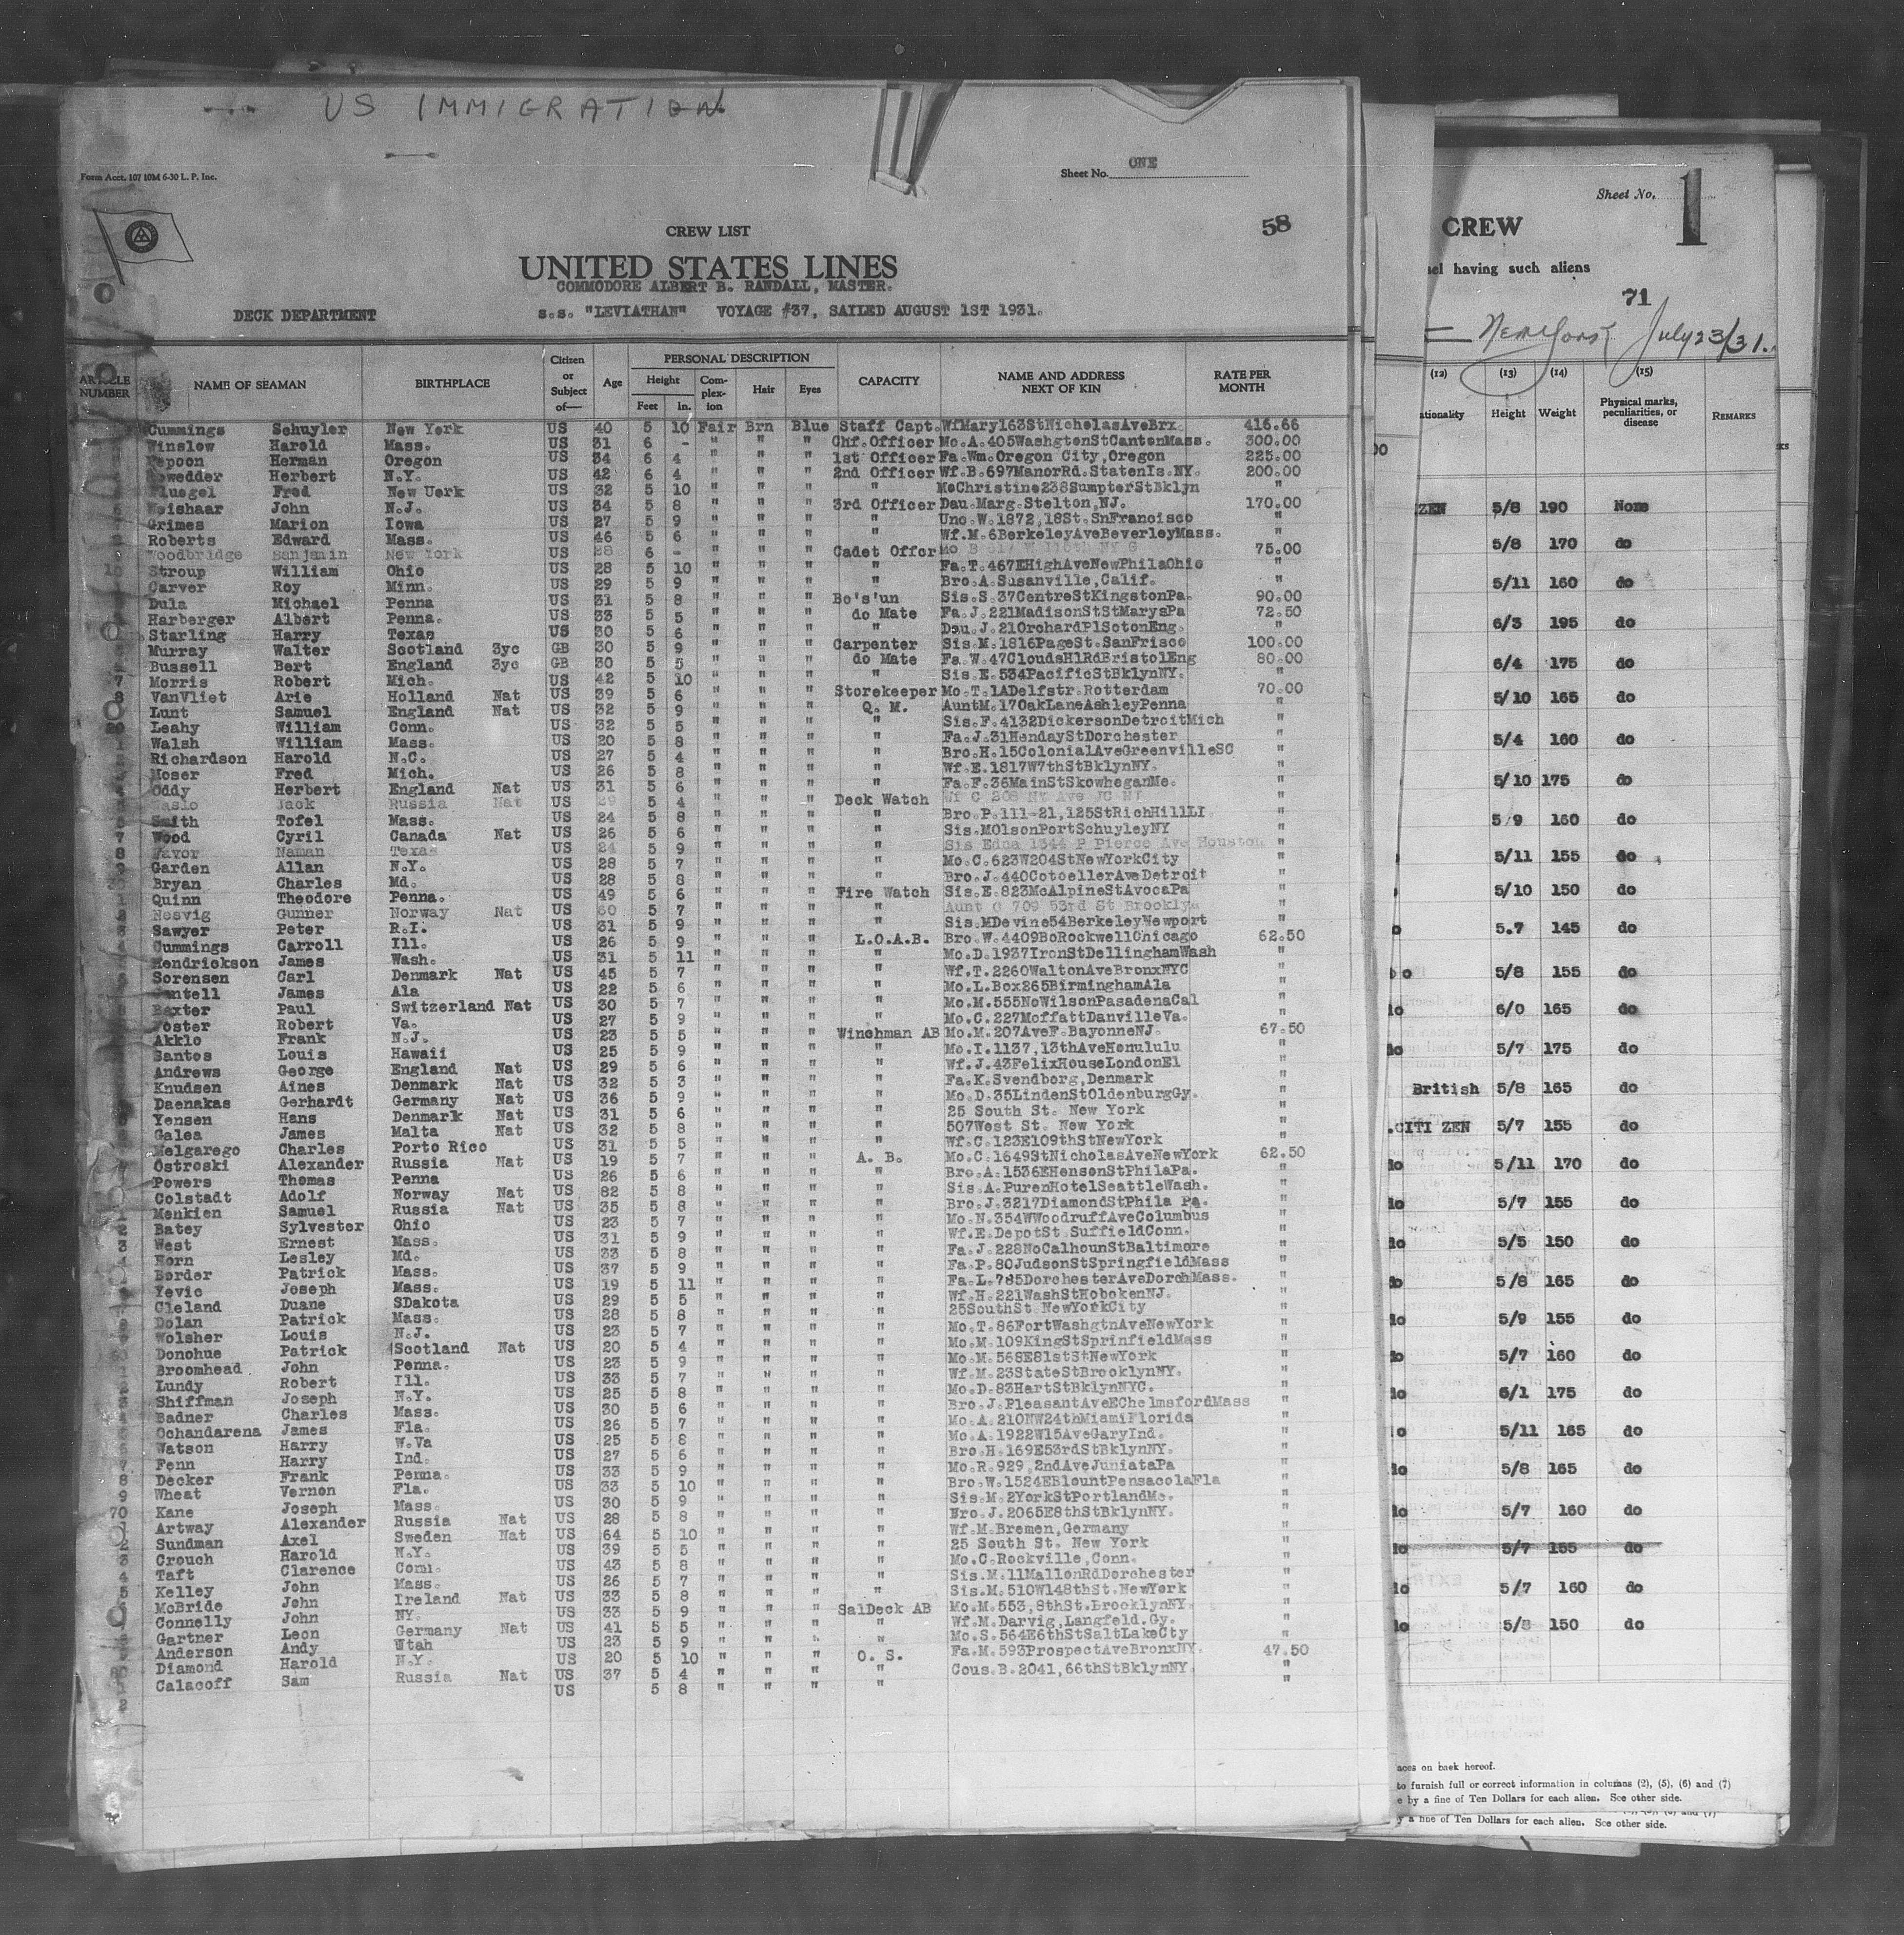 US IMMIGRATION
Form Acct. 107 10M 6-30 L. P. Inc.
Sheet No. ONE
58
CREW LIST
UNITED STATES LINES
COMMODORE ALBERT B. RANDALL, MASTER.
DECK DEPARTMENT s.s. "LEVIATHAN" VOYAGE #37, SAILED AUGUST 1ST 1931.
ARTICLE NUMBER NAME OF SEAMAN BIRTHPLACE Citizen or Subject of— Age PERSONAL DESCRIPTION Height Feet In. Complexion Hair Eyes CAPACITY NAME AND ADDRESS NEXT OF KIN RATE PER MONTH
Cummings Schuyler New York US 40 5 10 Fair Brn Blue Staff Capt. WfMary163StNicholasAveBrx. 416.66
Winslow Harold Mass. US 31 6 - " " " Chf.Officer Mo.A.405WashgtonStCantonMass. 300.00
Pepoon Herman Oregon US 34 6 4 " " " 1st Officer Fa.Wm.Oregon City,Oregon 225.00
Herbert N.Y. US 42 6 4 " " " 2nd Officer Wf.B.697ManorRd.StatenIs.NY. 200.00
Fluegel Fred New Uerk US 32 5 10 " " " " MoChristine238SumpterStBklyn "
Weishaar John N.J. US 34 5 8 " " " 3rd Officer Dau.Marg.Stelton,NJ. 170.00
Grimes Marion Iowa US 27 5 9 " " " " Unc.W.1872,18St.SnFrancisco "
Roberts Edward Mass. US 46 5 6 " " " " Wf.M.6BerkeleyAveBeverleyMass. "
Woodbridge Benjamin New York US 28 6 - " " " Cadet Offcr Mo B 75.00
10 Stroup William Ohio US 28 5 10 " " " " Fa.T.467EHighAveNewPhilaOhio "
Carver Roy Minn. US 29 5 9 " " " " Bro.A.Susanville,Calif. "
Dula Michael Penna US 31 5 8 " " " Bo's'un Sis.S.37CentreStKingstonPa. 90.00
Harberger Albert Penna. US 33 5 5 " " " do Mate Fa.J.221MadisonStStMarysPa 72.50
Starling Harry Texas US 30 5 6 " " " " Dau.J.21OrchardPlSotonEng. "
Murray Walter Scotland 3yc GB 30 5 9 " " " Carpenter Sis.M.1816PageSt.SanFrisco 100.00
Bussell Bert England 3yc GB 30 5 5 " " " do Mate Fa.W.47CloudsHlRdBristolEng 80.00
7 Morris Robert Mich. US 42 5 10 " " " " Sis.E.534PacificStBklynNY. "
8 VanVliet Arie Holland Nat US 39 5 6 " " " Storekeeper Mo.T.1ADelfstr.Rotterdam 70.00
Lunt Samuel England Nat US 32 5 9 " " " Q. M. AuntM.17OakLaneAshleyPenna "
20 Leahy William Conn. US 32 5 5 " " " " Sis.F.4132DickersonDetroitMich "
Walsh William Mass. US 20 5 8 " " " " Fa.J.31HendayStDorchester "
Richardson Harold N.C. US 27 5 4 " " " " Bro.H.15ColonialAveGreenvilleSC "
Moser Fred Mich. US 26 5 8 " " " " Wf.E.1817W7thStBklynNY. "
Oddy Herbert England Nat US 31 5 6 " " " " Fa.F.36MainStSkowheganMe. "
Jack Russia Nat US 29 5 4 " " " Deck Watch Wf C 208 NY Ave JC NJ "
Smith Tofel Mass. US 24 5 8 " " " " Bro.P.111-21,125StRichHillLI. "
7 Wood Cyril Canada Nat US 26 5 6 " " " " Sis.MOlsonPortSchuyleyNY "
8 Favor Naman Texas US 24 5 9 " " " " Sis Edna 1344 P Pierce Ave Houston "
9 Garden Allan N.Y. US 28 5 7 " " " " Mo.C.623W204StNewYorkCity "
30 Bryan Charles Md. US 28 5 8 " " " " Bro.J.440CotoellerAveDetroit "
1 Quinn Theodore Penna. US 49 5 6 " " " Fire Watch Sis.E.823McAlpineStAvocaPa "
2 Nesvig Gunner Norway Nat US 60 5 7 " " " " Aunt C 709 53rd St Brooklyn "
3 Sawyer Peter R.I. US 31 5 9 " " " " Sis.MDevine54BerkeleyNewport "
Cummings Carroll Ill. US 26 5 9 " " " L.O.A.B. Bro.W.4409BoRockwellChicago 62.50
Hendrickson James Wash. US 31 5 11 " " " " Mo.D.1937IronStDellinghamWash "
Sorensen Carl Denmark Nat US 45 5 7 " " " " Wf.T.2260WaltonAveBronxNYC "
Jantell James Ala US 22 5 6 " " " " Mo.L.Box265BirminghamAla "
Baxter Paul Switzerland Nat US 30 5 7 " " " " Mo.M.555NoWilsonPasadenaCal "
Foster Robert Va. US 27 5 9 " " " " Mo.C.227MoffattDanvilleVa. "
Akklo Frank N.J. US 23 5 5 " " " Winchman AB Mo.M.207AveF.BayonneNJ. 67.50
Santos Louis Hawaii US 25 5 9 " " " " Mo.I.1137,13thAveHonululu "
Andrews George England Nat US 29 5 6 " " " " Wf.J.43FelixHouseLondonE1 "
Knudsen Aines Denmark Nat US 32 5 3 " " " " Fa.K.Svendborg,Denmark "
Daenakas Gerhardt Germany Nat US 36 5 9 " " " " Mo.D.35LindenStOldenburgGy. "
Yensen Hans Denmark Nat US 31 5 6 " " " " 25 South St. New York "
Galea James Malta Nat US 32 5 8 " " " " 507West St. New York "
Melgarego Charles Porto Rico US 31 5 5 " " " " Wf.C.123E109thStNewYork "
Ostroski Alexander Russia Nat US 19 5 7 " " " A. B. Mo.C.1649StNicholasAveNewYork 62.50
Powers Thomas Penna US 26 5 6 " " " " Bro.A.1536EHensonStPhilaPa. "
Colstadt Adolf Norway Nat US 82 5 8 " " " " Sis.A.PurenHotelSeattleWash. "
1 Menkien Samuel Russia Nat US 35 5 8 " " " " Bro.J.3217DiamondStPhila Pa. "
2 Batey Sylvester Ohio US 23 5 7 " " " " Mo.N.354WWoodruffAveColumbus "
3 West Ernest Mass. US 31 5 9 " " " " Wf.E.DepotSt.SuffieldConn. "
Horn Lesley Md. US 33 5 8 " " " " Fa.J.228NoCalhounStBaltimore "
Border Patrick Mass. US 37 5 9 " " " " Fa.P.80JudsonStSpringfieldMass "
Yevic Joseph Mass. US 19 5 11 " " " " Fa.L.785DorchesterAveDorchMass. "
Cleland Duane SDakota US 29 5 5 " " " " Wf.H.221WashStHobokenNJ. "
Dolan Patrick Mass. US 28 5 8 " " " " 25SouthSt.NewYorkCity "
Wolsher Louis N.J. US 23 5 7 " " " " Mo.T.86FortWashgtnAveNewYork "
Donohue Patrick Scotland Nat US 20 5 4 " " " " Mo.M.109KingStSprinfieldMass "
Broomhead John Penna. US 23 5 9 " " " " Mo.M.568E81stStNewYork "
Lundy Robert Ill. US 33 5 7 " " " " Wf.M.23StateStBrooklynNY. "
Shiffman Joseph N.Y. US 25 5 8 " " " " Mo.D.83HartStBklynNYC. "
Badner Charles Mass. US 30 5 6 " " " " Bro.J.PleasantAveEChelmsfordMass "
Ochandarena James Fla. US 26 5 7 " " " " Mo.A.210NW24thMiamiFlorida "
Watson Harry W.Va US 25 5 8 " " " " Mo.A.1922W15AveGaryInd. "
7 Fenn Harry Ind. US 27 5 6 " " " " Bro.H.169E53rdStBklynNY. "
8 Decker Frank Penna. US 33 5 9 " " " " Mo.R.929,2ndAveJuniataPa "
9 Wheat Vernon Fla. US 33 5 10 " " " " Bro.W.1524EBlountPensacolaFla "
70 Kane Joseph Mass. US 30 5 9 " " " " Sis.M.2YorkStPortlandMe. "
1 Artway Alexander Russia Nat US 28 5 8 " " " " Bro.J.2065E8thStBklynNY. "
2 Sundman Axel Sweden Nat US 64 5 10 " " " " Wf.M.Bremen,Germany "
3 Crouch Harold N.Y. US 39 5 5 " " " " 25 South St. New York "
4 Taft Clarence Conn. US 43 5 8 " " " " Mo.C.Rockville,Conn. "
5 Kelley John Mass. US 26 5 7 " " " " Sis.M.11MallonRdDorchester "
McBride John Ireland Nat US 33 5 8 " " " " Sis.M.510W148thSt.NewYork "
Connelly John NY. US 33 5 9 " " " SalDeck AB Mo.M.553,8thSt.BrooklynNY. "
Gartner Leon Germany Nat US 41 5 5 " " " " Wf.M.Darvig,Langfeld.Gy. "
Anderson Andy Utah US 23 5 9 " " " " Mo.S.564E6thStSaltLakeCty "
80 Diamond Harold N.Y. US 20 5 10 " " " O. S. Fa.M.593ProspectAveBronxNY. 47.50
1 Calacoff Sam Russia Nat US 37 5 4 " " " " Cous.B.2041,66thStBklynNY. "
2 US 5 8 " " " "
Sheet No. 1
CREW
sel having such aliens
71
New York July 23/31.
(12) (13) (14) (15)
ationality Height Weight Physical marks, peculiarities, or disease REMARKS
ZEN 5/8 190 None
5/8 170 do
5/11 160 do
6/3 195 do
6/4 175 do
5/10 165 do
5/4 160 do
5/10 175 do
5/9 160 do
5/11 155 do
5/10 150 do
5.7 145 do
5/8 155 do
do 6/0 165 do
do 5/7 175 do
British 5/8 165 do
.CITI ZEN 5/7 155 do
do 5/11 170 do
do 5/7 155 do
do 5/5 150 do
do 5/8 165 do
do 5/9 155 do
do 5/7 160 do
do 6/1 175 do
do 5/11 165 do
do 5/8 165 do
do 5/7 160 do
do 5/7 155 do
do 5/7 160 do
do 5/8 150 do
aces on back hereof.
to furnish full or correct information in columns (2), (5), (6) and (7)
e by a fine of Ten Dollars for each alien. See other side.
y a fine of Ten Dollars for each alien. See other side.